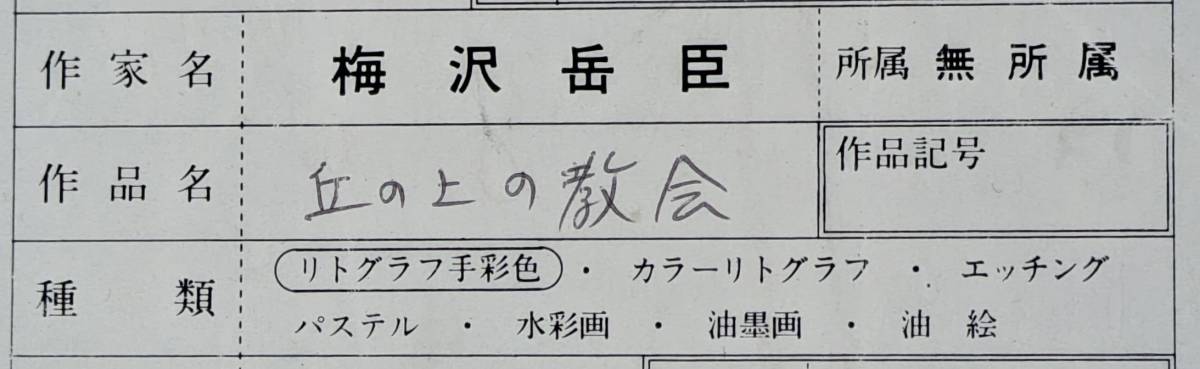 作家名 梅沢岳臣 所属 無所属
作品名 丘の上の教会 作品記号
種類 リトグラフ手彩色 ・ カラーリトグラフ ・ エッチング
パステル ・ 水彩画 ・ 油墨画 ・ 油絵